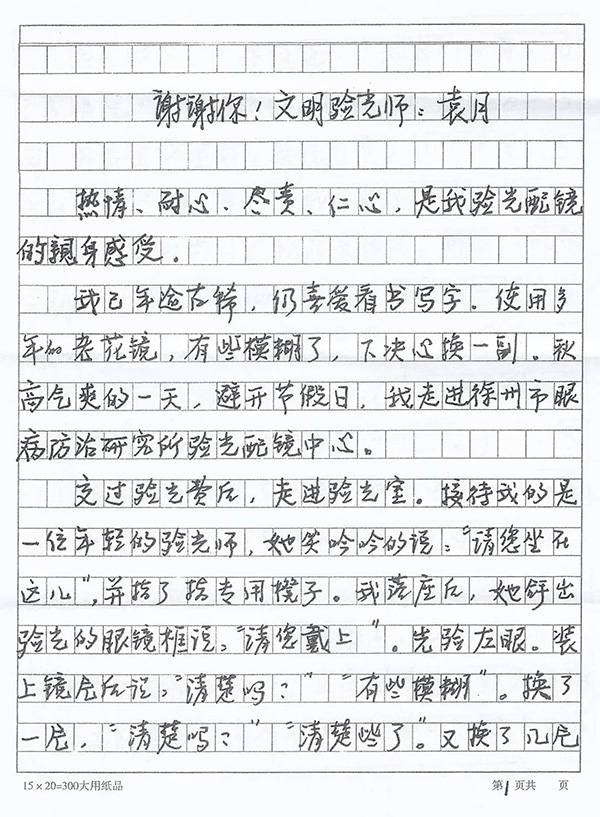 谢谢你！文明验光师：袁月
热情、耐心、尽责、仁心，是我验光配镜
的親身感受。
我已年逾古稀，仍喜爱看书写字。使用多
年的老花镜，有些模糊了，下决心换一副。秋
高气爽的一天，避开节假日，我走进徐州市眼
病防治研究所验光配镜中心。
交过验光费后，走进验光室。接待我的是
一位年轻的验光师，她笑吟吟的说：“请您坐在
这儿”，并指了指专用櫈子。我落座后，她舒出
验光的眼镜框说：“请您戴上”。先验左眼。装
上镜片后说：“清楚吗？”“有些模糊”。换了
一片，“清楚吗？”“清楚些了”。又换了几片
15×20=300大用纸品
第1页共 页